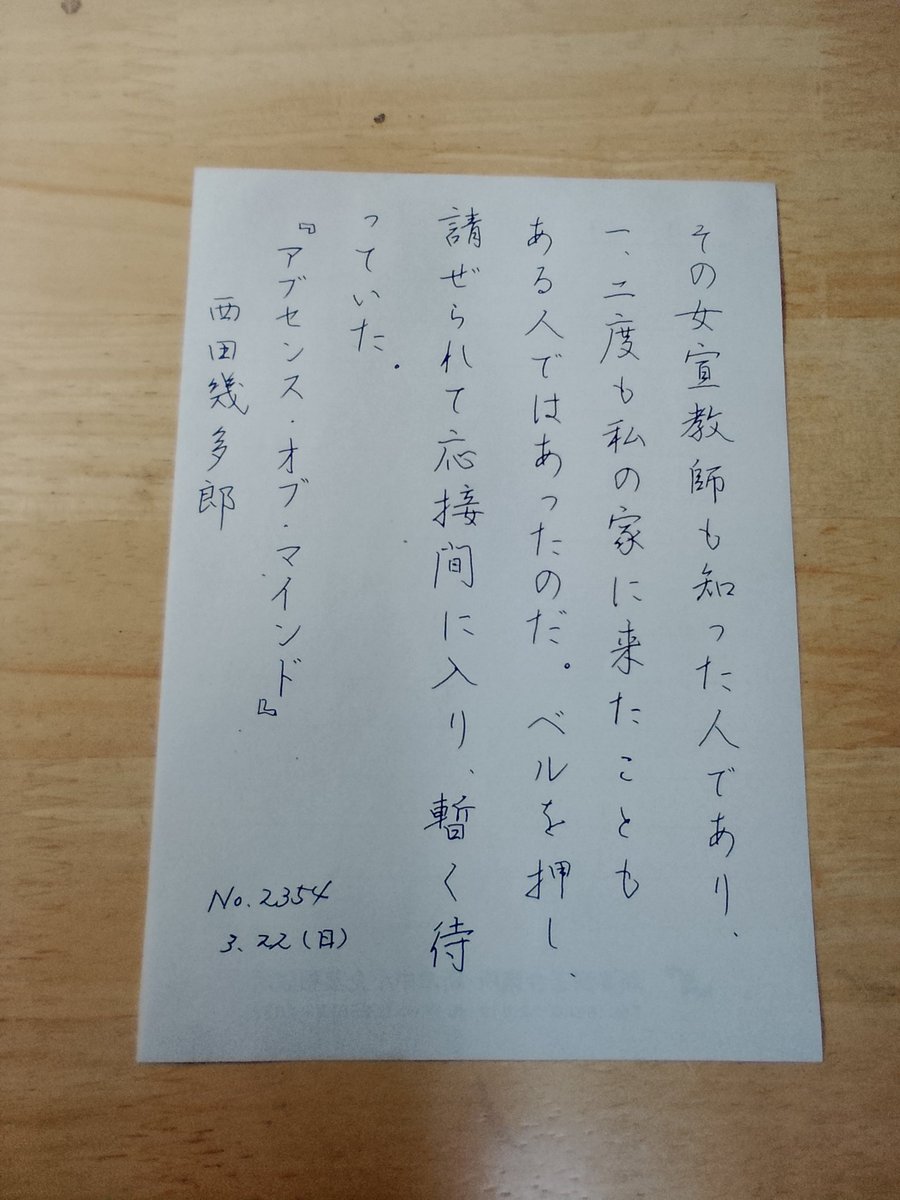 その女宣教師も知った人であり、
一、二度も私の家に来たことも
ある人ではあったのだ。ベルを押し、
請ぜられて応接間に入り、暫く待
っていた。
『アブセンス・オブ・マインド』
西田幾多郎
No.2354
3.22(日)